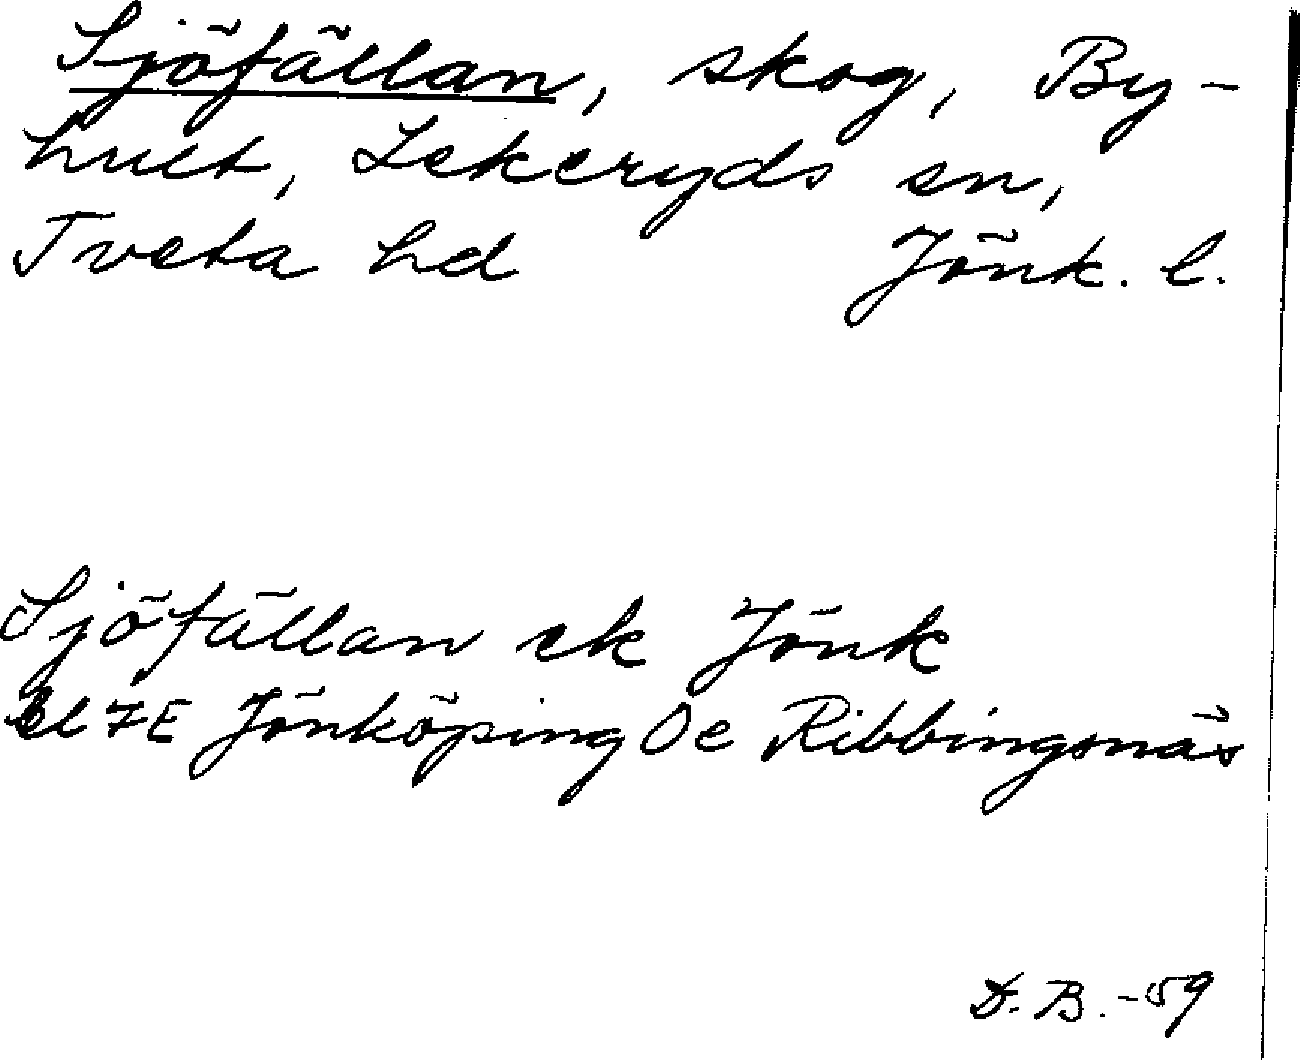 Sjöfällan, skog, By-
hult, Lekeryds sn,
Tveta hd Jönk. l.
Sjöfällan ek Jönk
Bl 7E Jönköping Oe Ribbingsnäs
D. B. -59